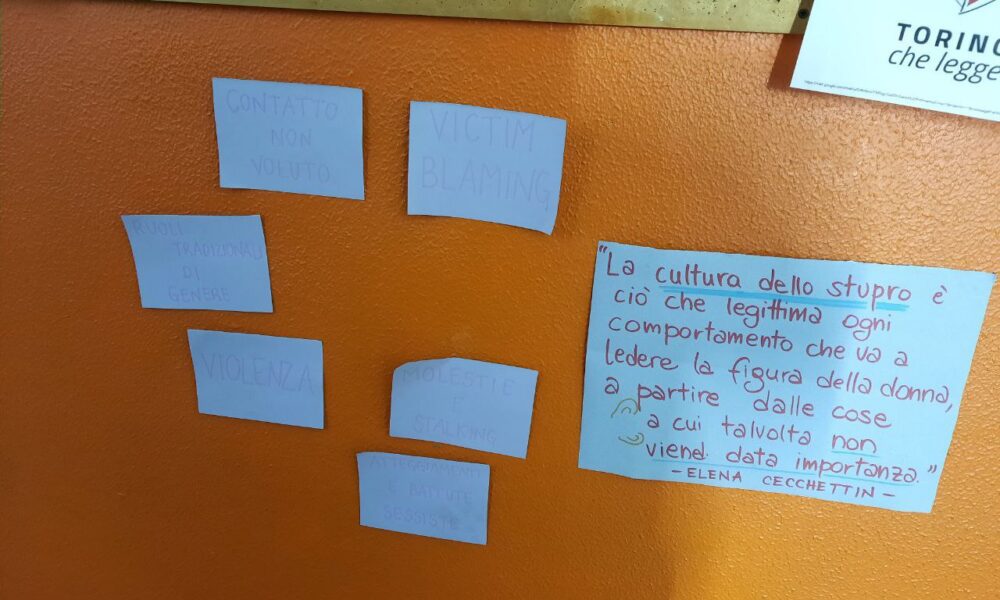 TORINO
che legge
CONTATTO
NON
VOLUTO
VICTIM
BLAMING
RUOLI
TRADIZIONALI
DI
GENERE
VIOLENZA
MOLESTIE
E
STALKING
ATTEGGIAMENTI
E BATTUTE
SESSISTE
"La cultura dello stupro è
ciò che legittima ogni
comportamento che va a
ledere la figura della donna,
a partire dalle cose
a cui talvolta non
viend data importanza."
- ELENA CECCHETTIN -